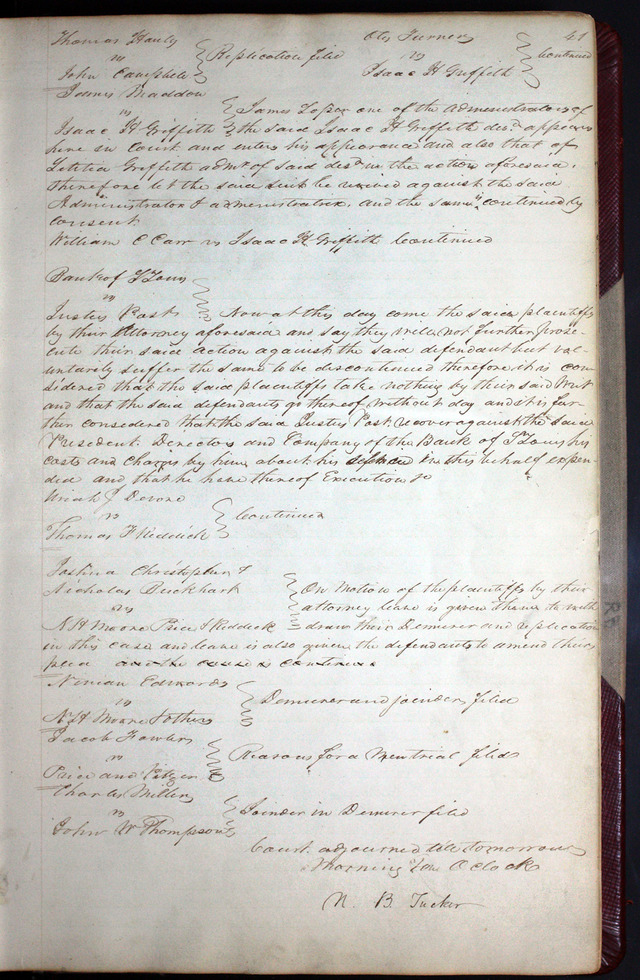 Thomas Hauly
vs } Replication filed
John Campbell
Otis Turner 41
vs } Continued
Isaac H Griffith
James Maddon
vs } James Loper one of the administrators of
Isaac H Griffith the said Isaac H Griffith desd appears
here in Court and enters his appearance and also that of
Letitia Griffith admr of said desd in the action aforesaid.
Therefore let the said suit be revived against the said
Administrator & administratrix. and the same continued by
consent.
William C Carr vs Isaac H Griffith Continued
Bank of S Louis
vs
Justus Post } Now at this day come the said plaintiffs
by their Attorney aforesaid and say they will not further prose
cute their said action against the said defendant but vol-
untarily suffer the same to be discontinued therefore it is con
sidered that the said plaintiffs take nothing by their said writ
and that the said defendants go thereof without day and it is fur
ther considered that the said Justus Post recover against the said
President Directors and Company of the Bank of S Louis his
costs and charges by him about his defence in this behalf expen-
ded and that he have thereof Execution &c
Uriah J Devore
vs } Continued
Thomas F Riddick
Christopher &
Nicholas Burkhart } On motion of the plaintiffs by their
vs attorney leave is given them to with
N H Moore Price & Riddick draw their Demurer and replication
in this case and leave is also given the defendants to amend their
plea and the cause is continued
Ninian Edwards
vs } Demurer and joinder filed
N H Moore & others
Jacob Fowler
vs } Reasons for a New trial filed
Price and
Charles Miller
vs } Joinder in Demurer filed
John W Thompson
Court adjourned till tomorrow
Morning Ten O Clock
N. B. Tucker